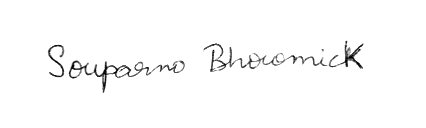 Souparno Bhowmick